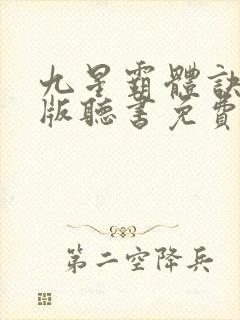 九星霸體訣
版聽書免費
第二空降兵